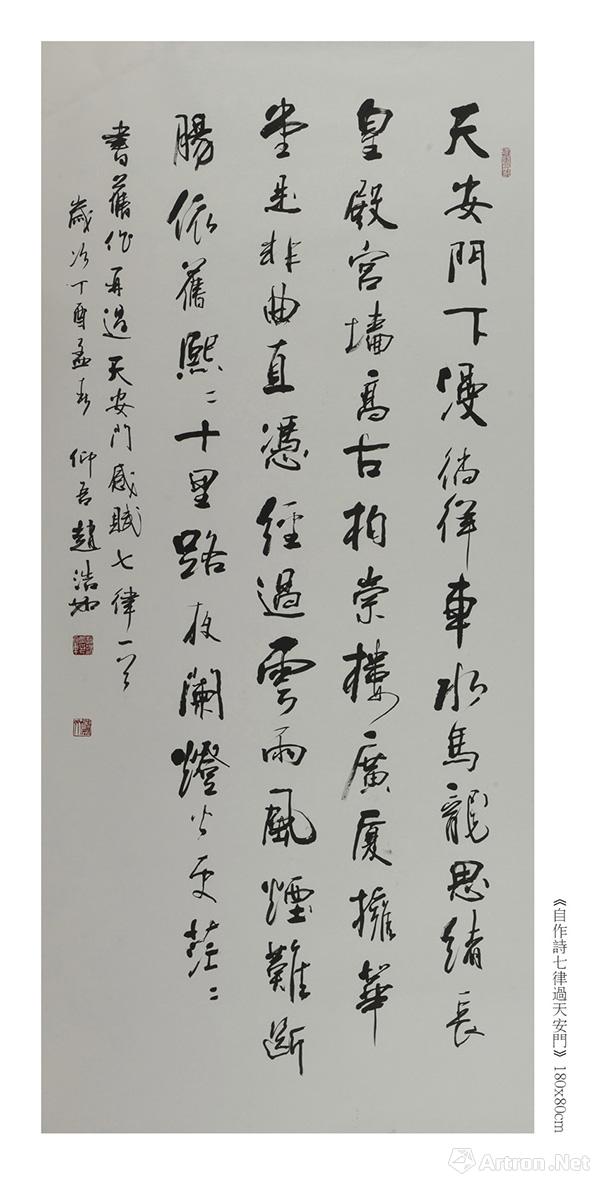 天安門下漫徜徉車水馬龍思緒長
皇殿宮墻高古柏崇樓廣廈擁華
堂是非曲直憑經過雲雨風煙難斷
腸依舊熙〻十里路夜闌燈火更茫〻
書舊作再過天安門感賦七律一首
歲次丁酉孟春 仰吾趙浩如
《自作詩七律過天安門》180x80cm
Artron.Net